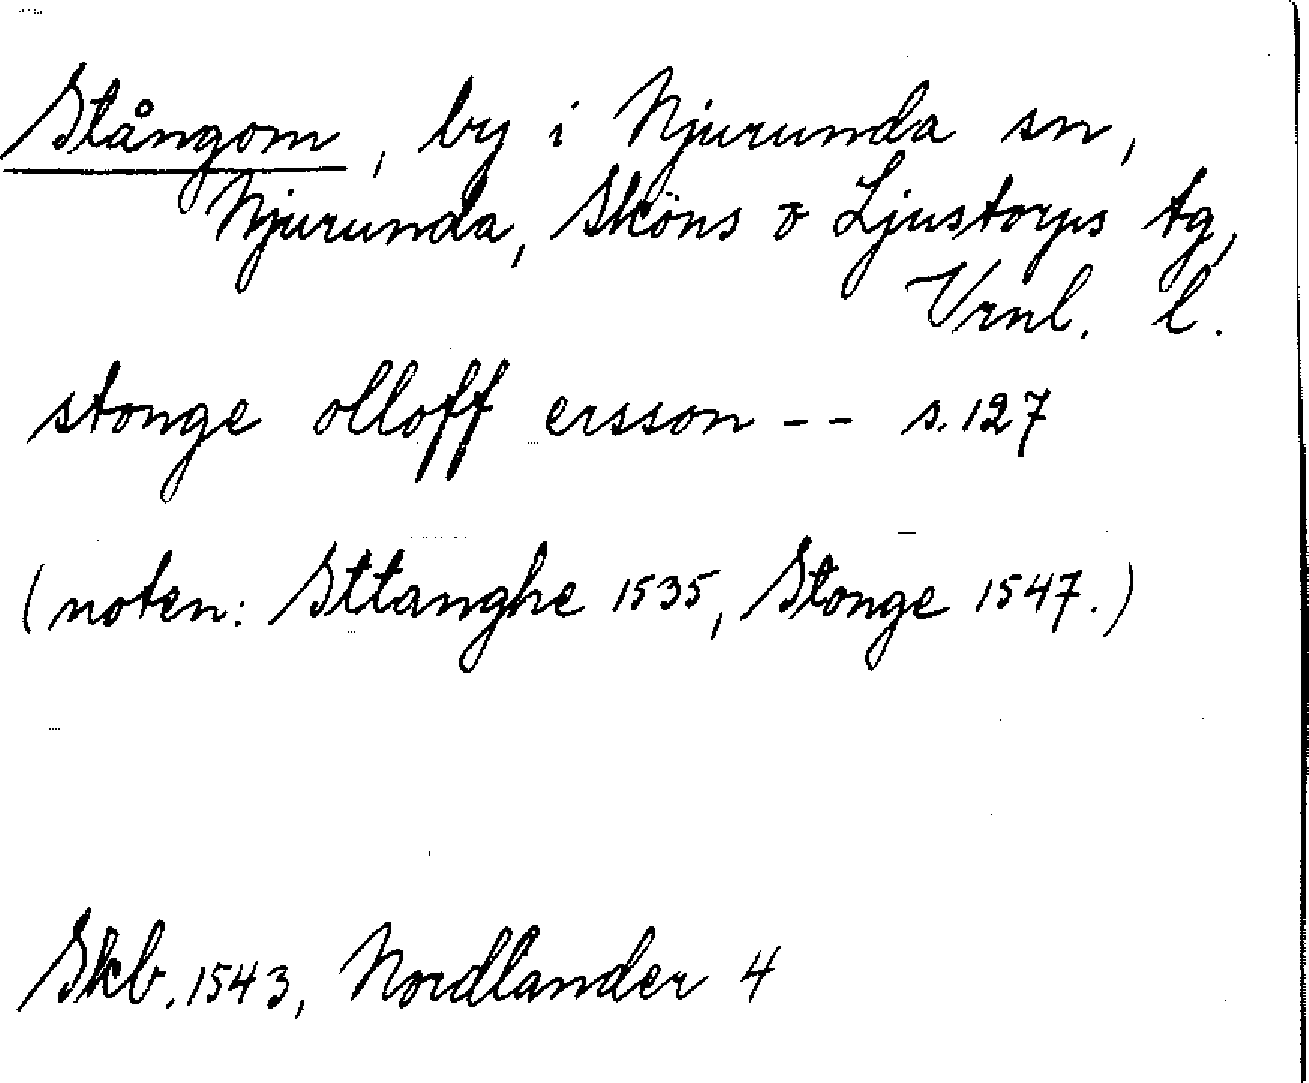 Stångom, by i Njurunda sn,
Njurunda, Sköns o Ljustorps tg,
Vrnl. l.
stonge olloff ersson -- s. 127
(noten: Sttanghe 1535, Stonge 1547.)
Skb. 1543, Nordlander 4